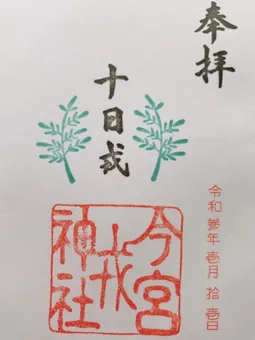 奉拝
十日戎
今宮
戎
神社
令和参年壱月拾壱日